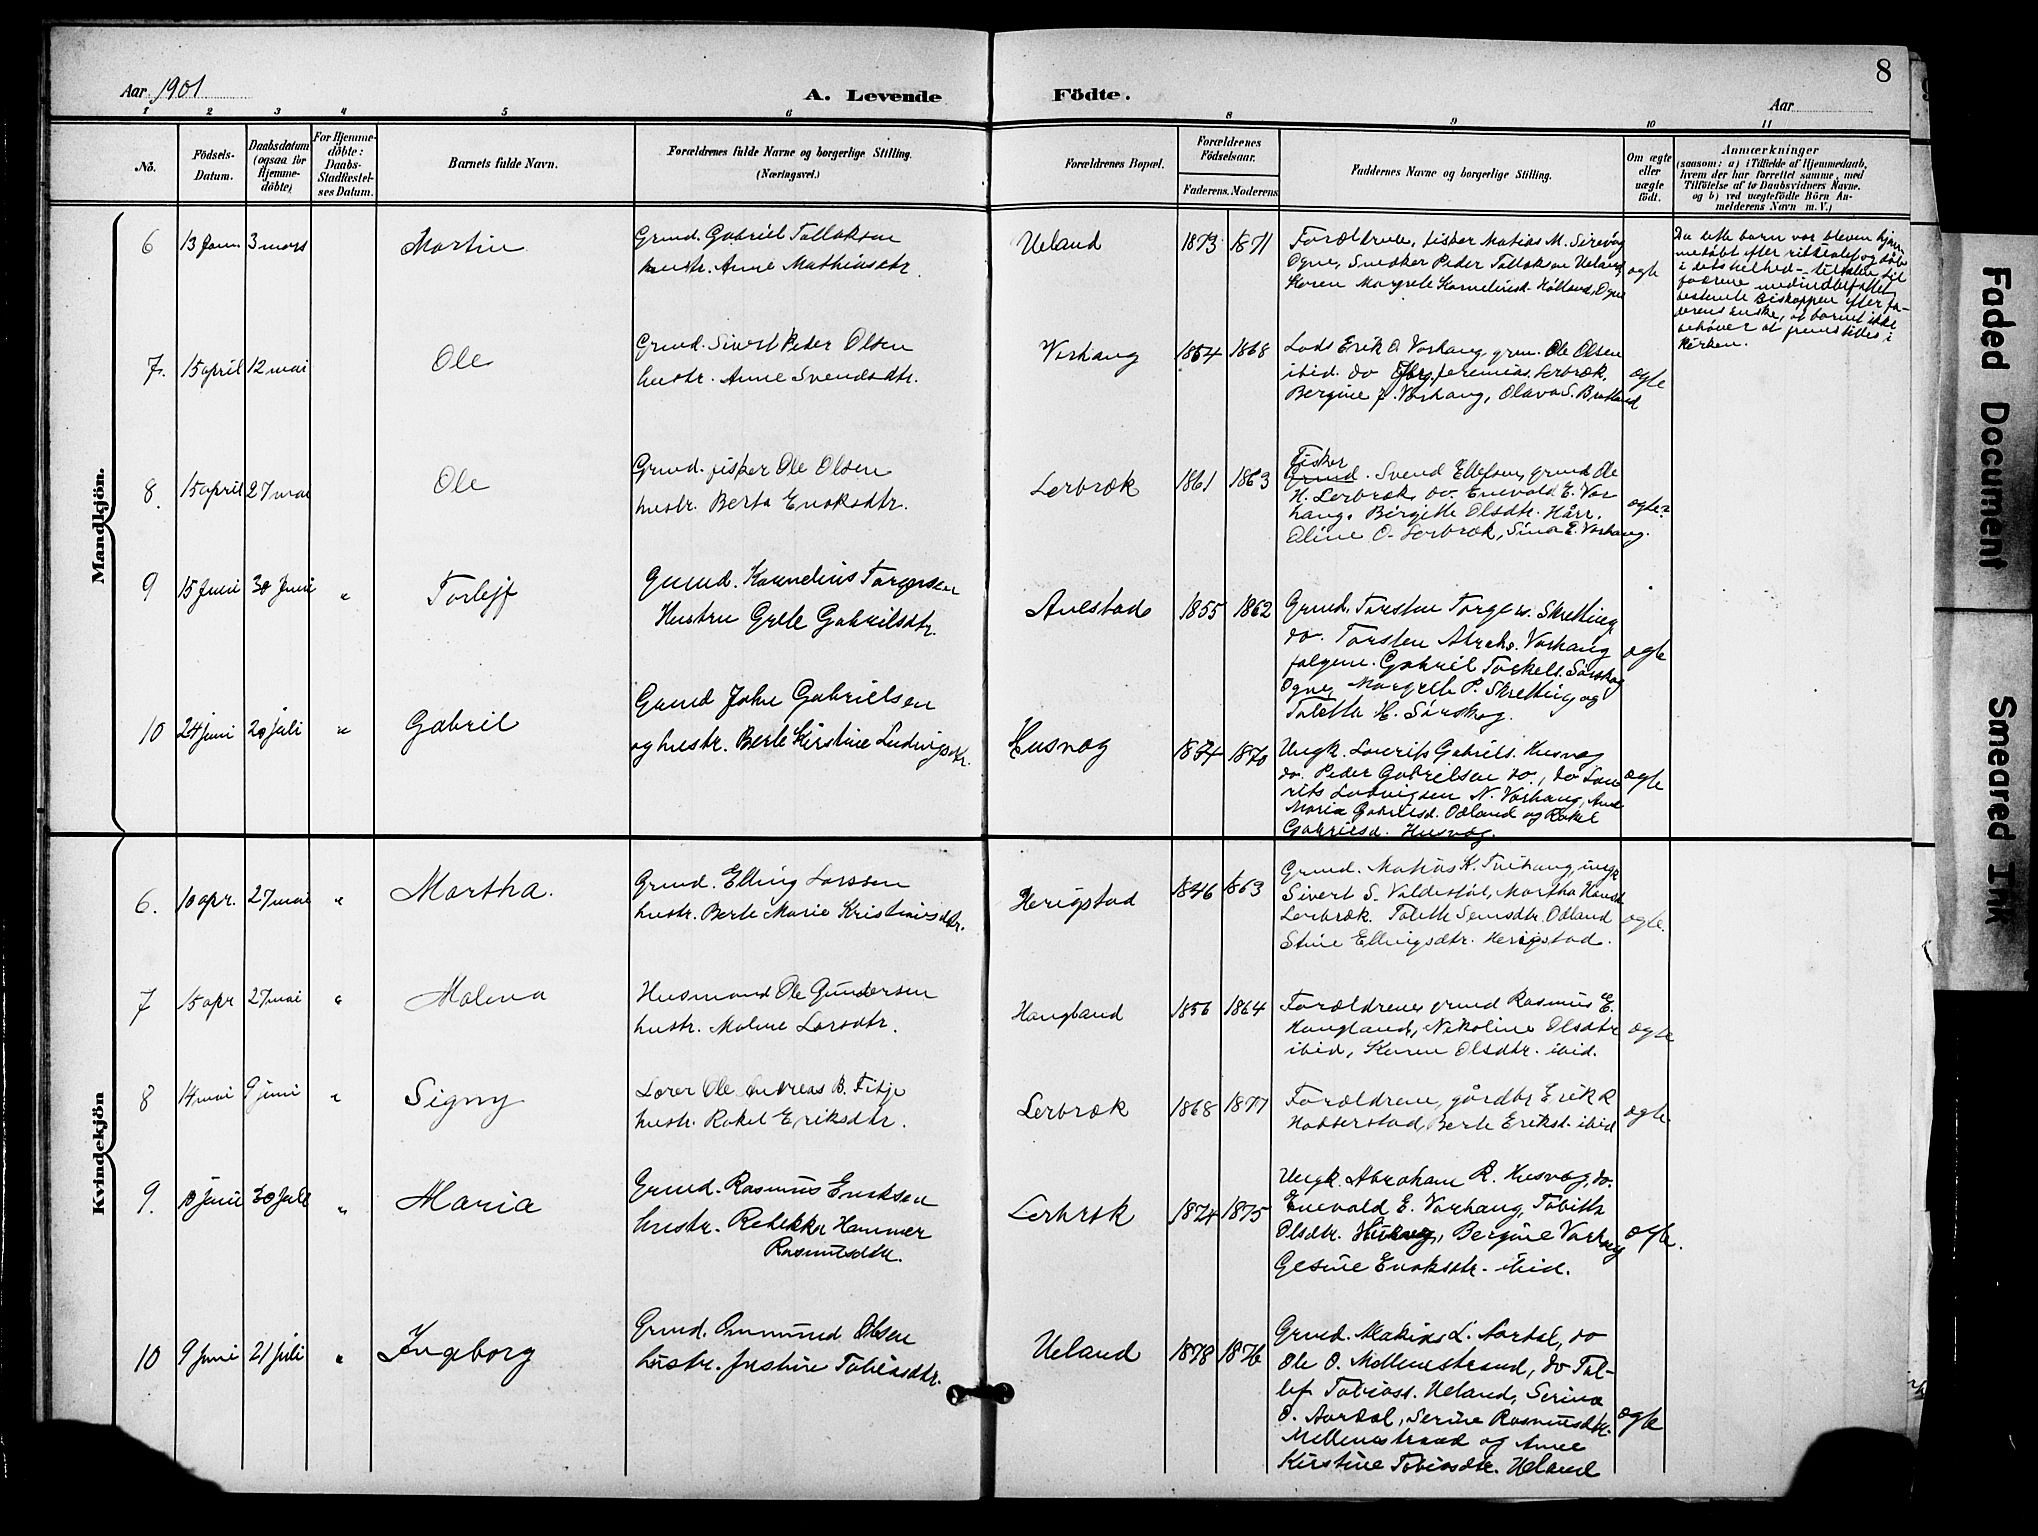 8
Aar 1901 A. Levende Födte. Aar
1 2 3 4 5 6 8 9 10 11
No.
Födsels-
Datum.
Daabsdatum
(ogsaa for
Hjemme-
döbte)
For Hjemme-
döbte:
Daabs-
Stadfæstel-
ses Datum.
Barnets fulde Navn.
Forældrenes fulde Navne og borgerlige Stilling.
(Næringsvei.)
Forældrenes Bopæl.
Forældrenes
Födselsaar.
Faderens. Moderens.
Faddernes Navne og borgerlige Stilling.
Om ægte
eller
uægte
födt.
Anmærkninger
(saasom: a) i Tilfælde af Hjemmedaab,
hvem der har forrettet samme, med
Tilföielse af to Daabsvidners Navne.
og b) ved uægtefödte Börn An-
melderens Navn m. V.)
Mandkjön.
6 13 Jan. 3 mars Martin
Grmd. Gabriel Tollaksen
hustr. Anne Mathiasdtr.
Ueland 1873 1871
Forældrene, fisker Matias M. Sirevåg
Ogne, Snedker Peder Tollaksen Ueland,
Karen Margrete Kornelinsd. Hølland, Ogne
ægte
Da dette barn var bleven hjem-
medöbt efter ritualet og döbt
i dets helhed
bestemte Biskoppen efter fa-
derens önske, at barnet ikke
behöver at fremstilles i
Kirken.
7. 15 april 12 mai Ole
Grmd. Sivert Peder Olsen
hustr. Anne Svendsdtr.
Varhaug 1864 1868
Lods Erik O. Varhaug, grm. Ole Olsen
ibid. do Jeremias. Lerbræk.
Bergine J. Varhaug, Olava S. Bratland
ægte
8. 15 april 27 mai Ole
Grmd. fisker Ole Olsen
hustr. Berta Enoksdtr.
Lerbræk 1861 1863
Fisker
Grmd. Svend Ellefsen, grmd Ole
H. Lerbræk, do. Enevald E. Var
haug. Birgitte Olsdtr. Hårr.
Oline O. Lerbræk, Sina E. Varhaug.
ægte
9 15 Juni 30 Juni " Torleif
Grmd. Kornelius Torgersen
Hustru Grete Gabrielsdtr.
Auestad 1855 1862
Grmd. Torsten Torgers. Skretting
do. Torsten Abrahs. Varhaug
følgene. Gabriel Torkels. Sørskog
Ogne, Margrete P. Skretting og
Tolette H. Sørskog.
ægte
10 24 juni 20 juli " Gabriel
Grmd John Gabrielsen
og hustr. Berte Kirstine Ludvigsdtr.
Husvæg 1874 1870
Ungk. Laurits Gabriels. Husvæg
do. Peder Gabrielsen do., do Lau
rits Ludvigsen N. Varhaug, Ane
Maria Gabrielsd. Odland og Rakel
Gabrielsd. Husvæg.
ægte
Kvindekjön
6. 10 apr. 27 mai " Martha.
Grmd. Elling Larssen
hustr. Berte Marie Kristiansdtr.
Herigstad 1846 1863
Grmd. Matias K. Tvihaug, ungk
Sivert S. Valdestøl, Martha Hansd.
Lerbræk. Tolette Semsdtr. Odland
Stine Ellingsdtr. Herigstad.
ægte.
7 15 apr 27 mai " Malena
Husmand Ole Gundersen
hustr. Malene Larsdtr.
Haugland 1856 1864
Forældrene, grmd Rasmus E.
Haugland, Nikoline Olsdtr
ibid, Karen Olsdtr. ibid.
ægte
8 14 mai 9 juni " Signy
Lærer Ole Andreas B. Fitje
hustr. Rakel Eriksdtr.
Lerbræk 1868 1877
Forældrene, gårdbr Erik R
Hobberstad, Berte Eriksd. ibid
ægte
9. 10 Juni 30 Juli " Maria
Grmd. Rasmus Eriksen
hustr. Rebekka Hammer
Rasmusdtr.
Lerbræk 1874 1875
Ungk. Abraham R. Husvæg, do.
Enevald E. Varhaug, Tobitte
Olsdtr. Husvæg, Bergine Varhaug
Gesine Enoksdtr. ibid.
ægte.
10 9 Juni 21 Juli " Ingeborg
Grmd. Ommund Olsen
hustr. Justine Tobiasdtr.
Ueland 1878 1876
Grmd. Matias L. Aardal, do
Ole O. Mellemstrand, do Tol-
lef Tobiass. Ueland, Serina
O. Aardal, Serine Rasmusdtr.
Mellemstrand og Anne
Kirstine Tobiasdtr. Ueland
ægte
Faded Document
Smeared Ink